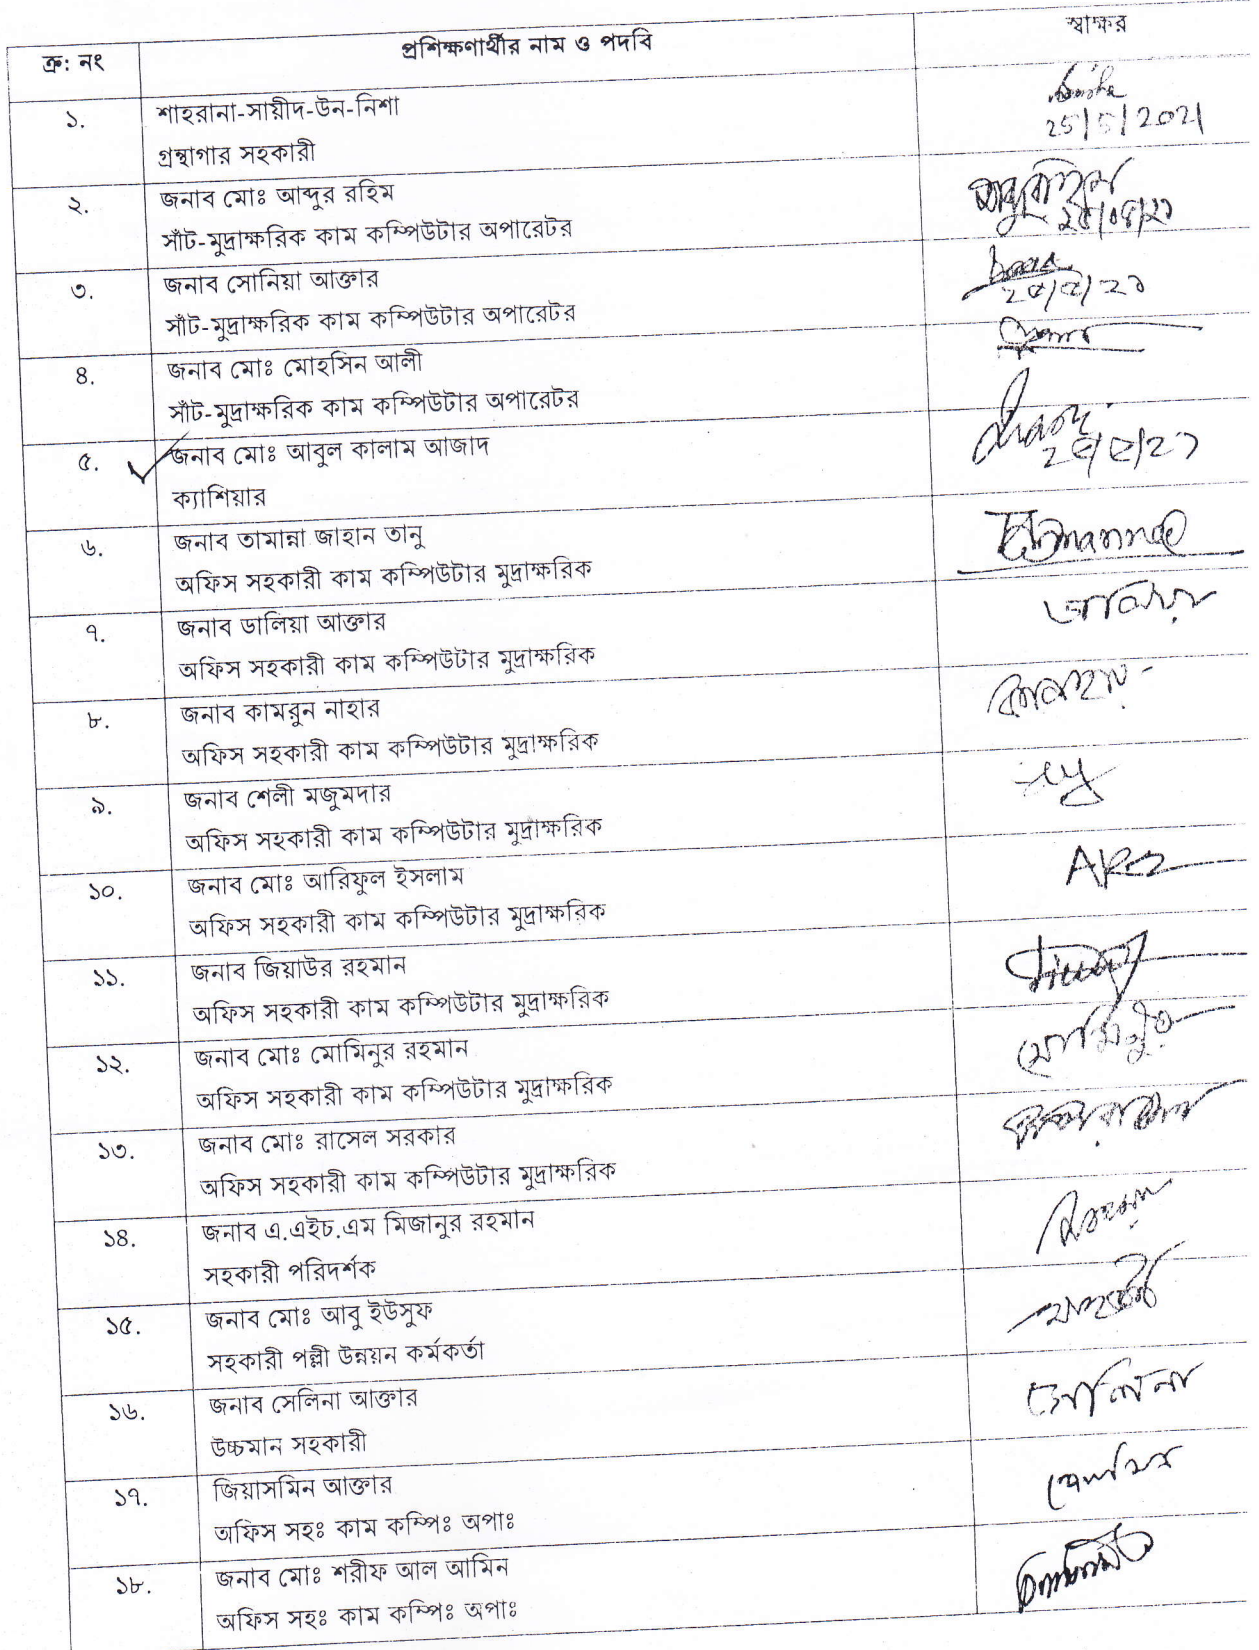 ক্র: নং প্রশিক্ষণার্থীর নাম ও পদবি স্বাক্ষর
১. শাহরানা-সায়ীদ-উন-নিশা
গ্রন্থাগার সহকারী
25/5/2021
২. জনাব মোঃ আব্দুর রহিম
সাঁট-মুদ্রাক্ষরিক কাম কম্পিউটার অপারেটর
২৫/০৫/২১
৩. জনাব সোনিয়া আক্তার
সাঁট-মুদ্রাক্ষরিক কাম কম্পিউটার অপারেটর
২৫/৫/২১
৪. জনাব মোঃ মোহসিন আলী
সাঁট-মুদ্রাক্ষরিক কাম কম্পিউটার অপারেটর
৫. জনাব মোঃ আবুল কালাম আজাদ
ক্যাশিয়ার
২৫/৫/২১
৬. জনাব তামান্না জাহান তানু
অফিস সহকারী কাম কম্পিউটার মুদ্রাক্ষরিক
৭. জনাব ডালিয়া আক্তার
অফিস সহকারী কাম কম্পিউটার মুদ্রাক্ষরিক
৮. জনাব কামরুন নাহার
অফিস সহকারী কাম কম্পিউটার মুদ্রাক্ষরিক
৯. জনাব শেলী মজুমদার
অফিস সহকারী কাম কম্পিউটার মুদ্রাক্ষরিক
১০. জনাব মোঃ আরিফুল ইসলাম
অফিস সহকারী কাম কম্পিউটার মুদ্রাক্ষরিক
১১. জনাব জিয়াউর রহমান
অফিস সহকারী কাম কম্পিউটার মুদ্রাক্ষরিক
১২. জনাব মোঃ মোমিনুর রহমান মোমিনুর
অফিস সহকারী কাম কম্পিউটার মুদ্রাক্ষরিক
১৩. জনাব মোঃ রাসেল সরকার
অফিস সহকারী কাম কম্পিউটার মুদ্রাক্ষরিক
১৪. জনাব এ.এইচ.এম মিজানুর রহমান
সহকারী পরিদর্শক
১৫. জনাব মোঃ আবু ইউসুফ
সহকারী পল্লী উন্নয়ন কর্মকর্তা
১৬. জনাব সেলিনা আক্তার সেলিনা
উচ্চমান সহকারী
১৭. জিয়াসমিন আক্তার
অফিস সহঃ কাম কম্পিঃ অপাঃ
১৮. জনাব মোঃ শরীফ আল আমিন
অফিস সহঃ কাম কম্পিঃ অপাঃ